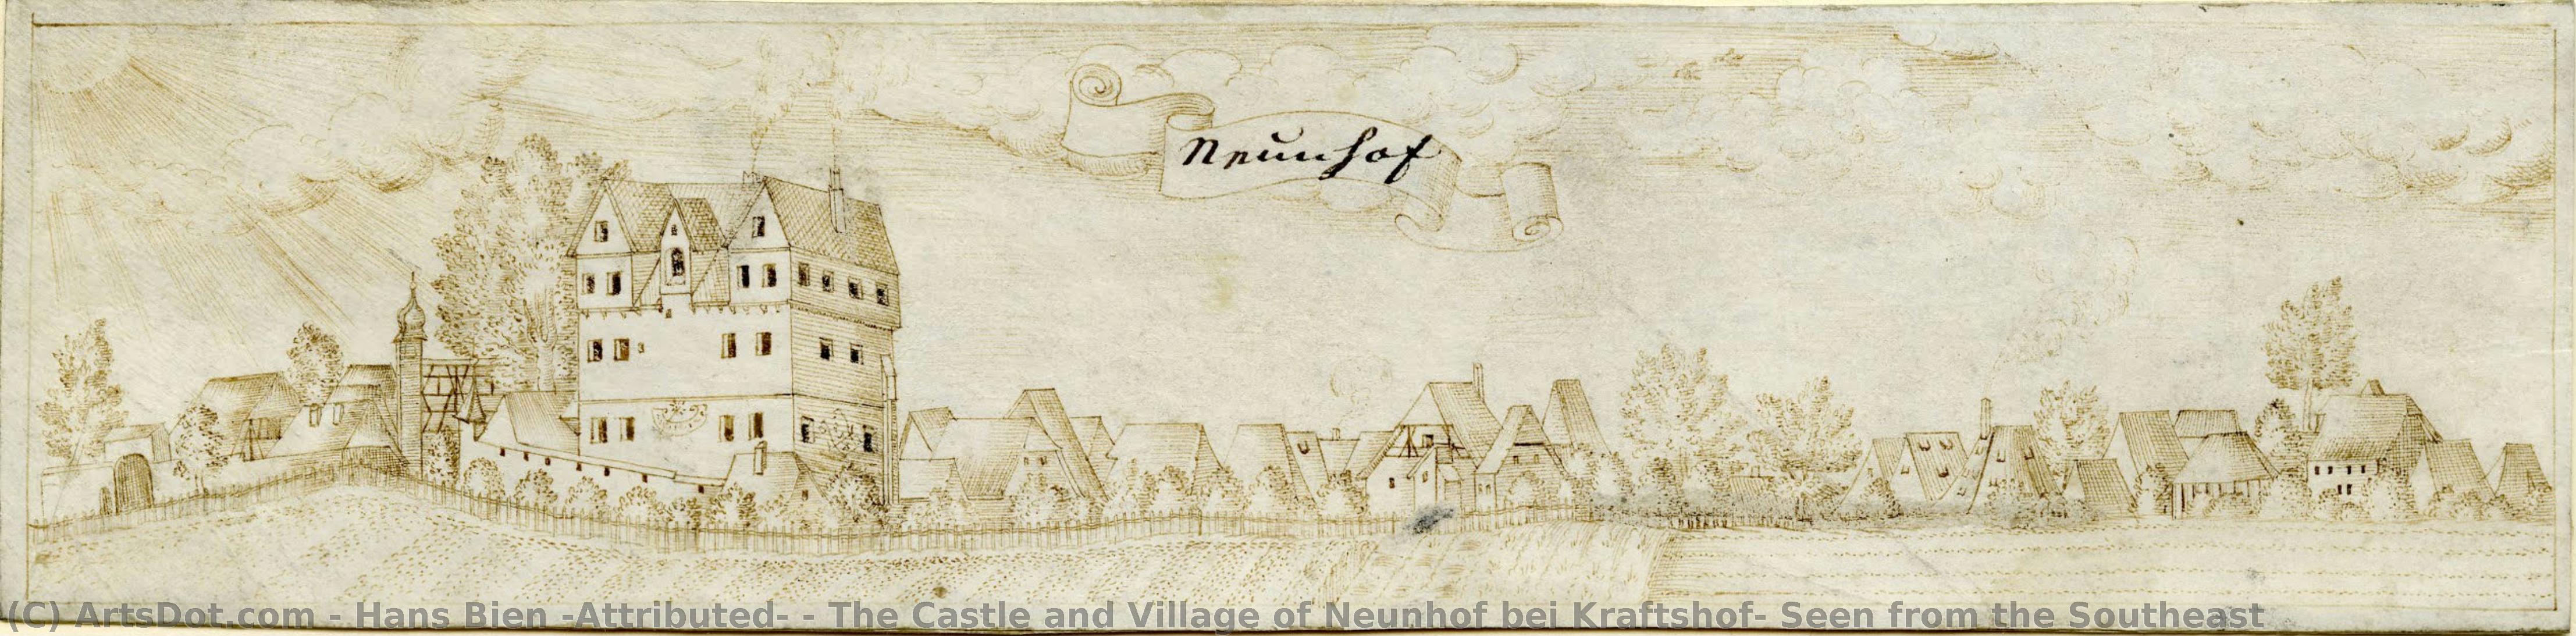 Neunhof
(C) ArtsDot.com - Hans Bien -Attributed- - The Castle and Village of Neunhof bei Kraftshof- Seen from the Southeast